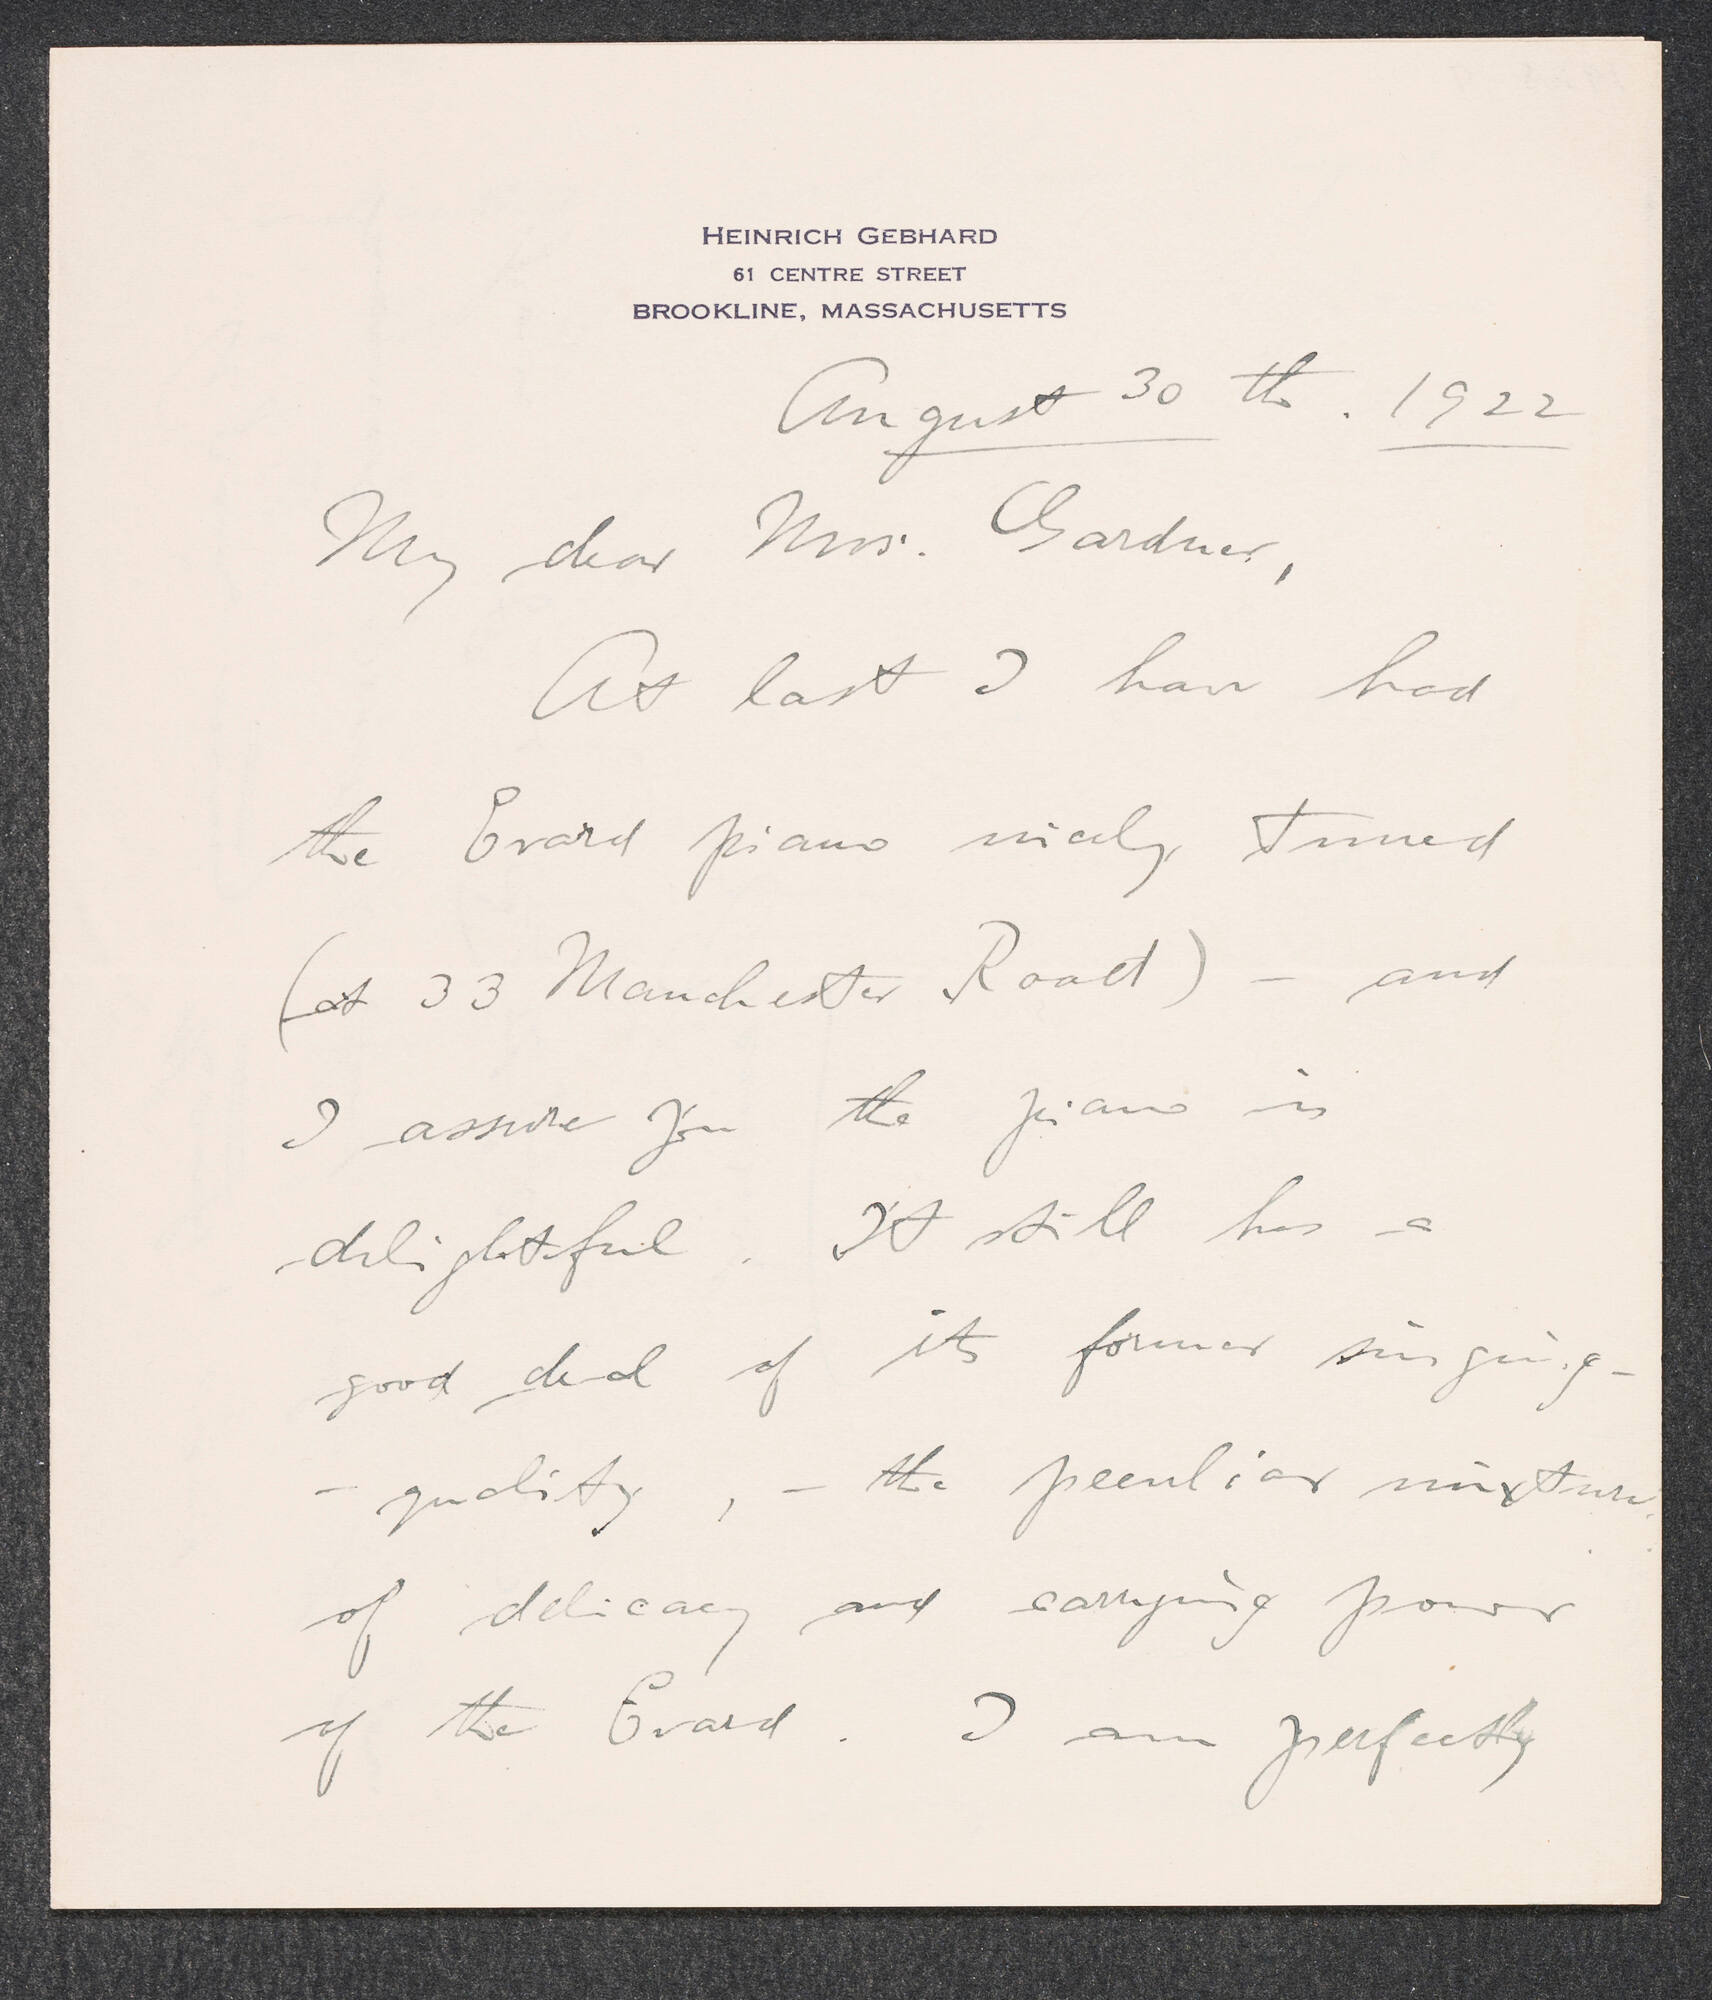 HEINRICH GEBHARD
61 CENTRE STREET
BROOKLINE, MASSACHUSETTS
August 30th. 1922
My dear Mrs. Gardner,
At last I have had
the Erard piano nicely tuned
(at 33 Manchester Road) - and
I assure you the piano is
delightful. It still has a
good deal of its former singing-
- quality, - the peculiar mixture
of delicacy and carrying power
of the Erard. I am perfectly